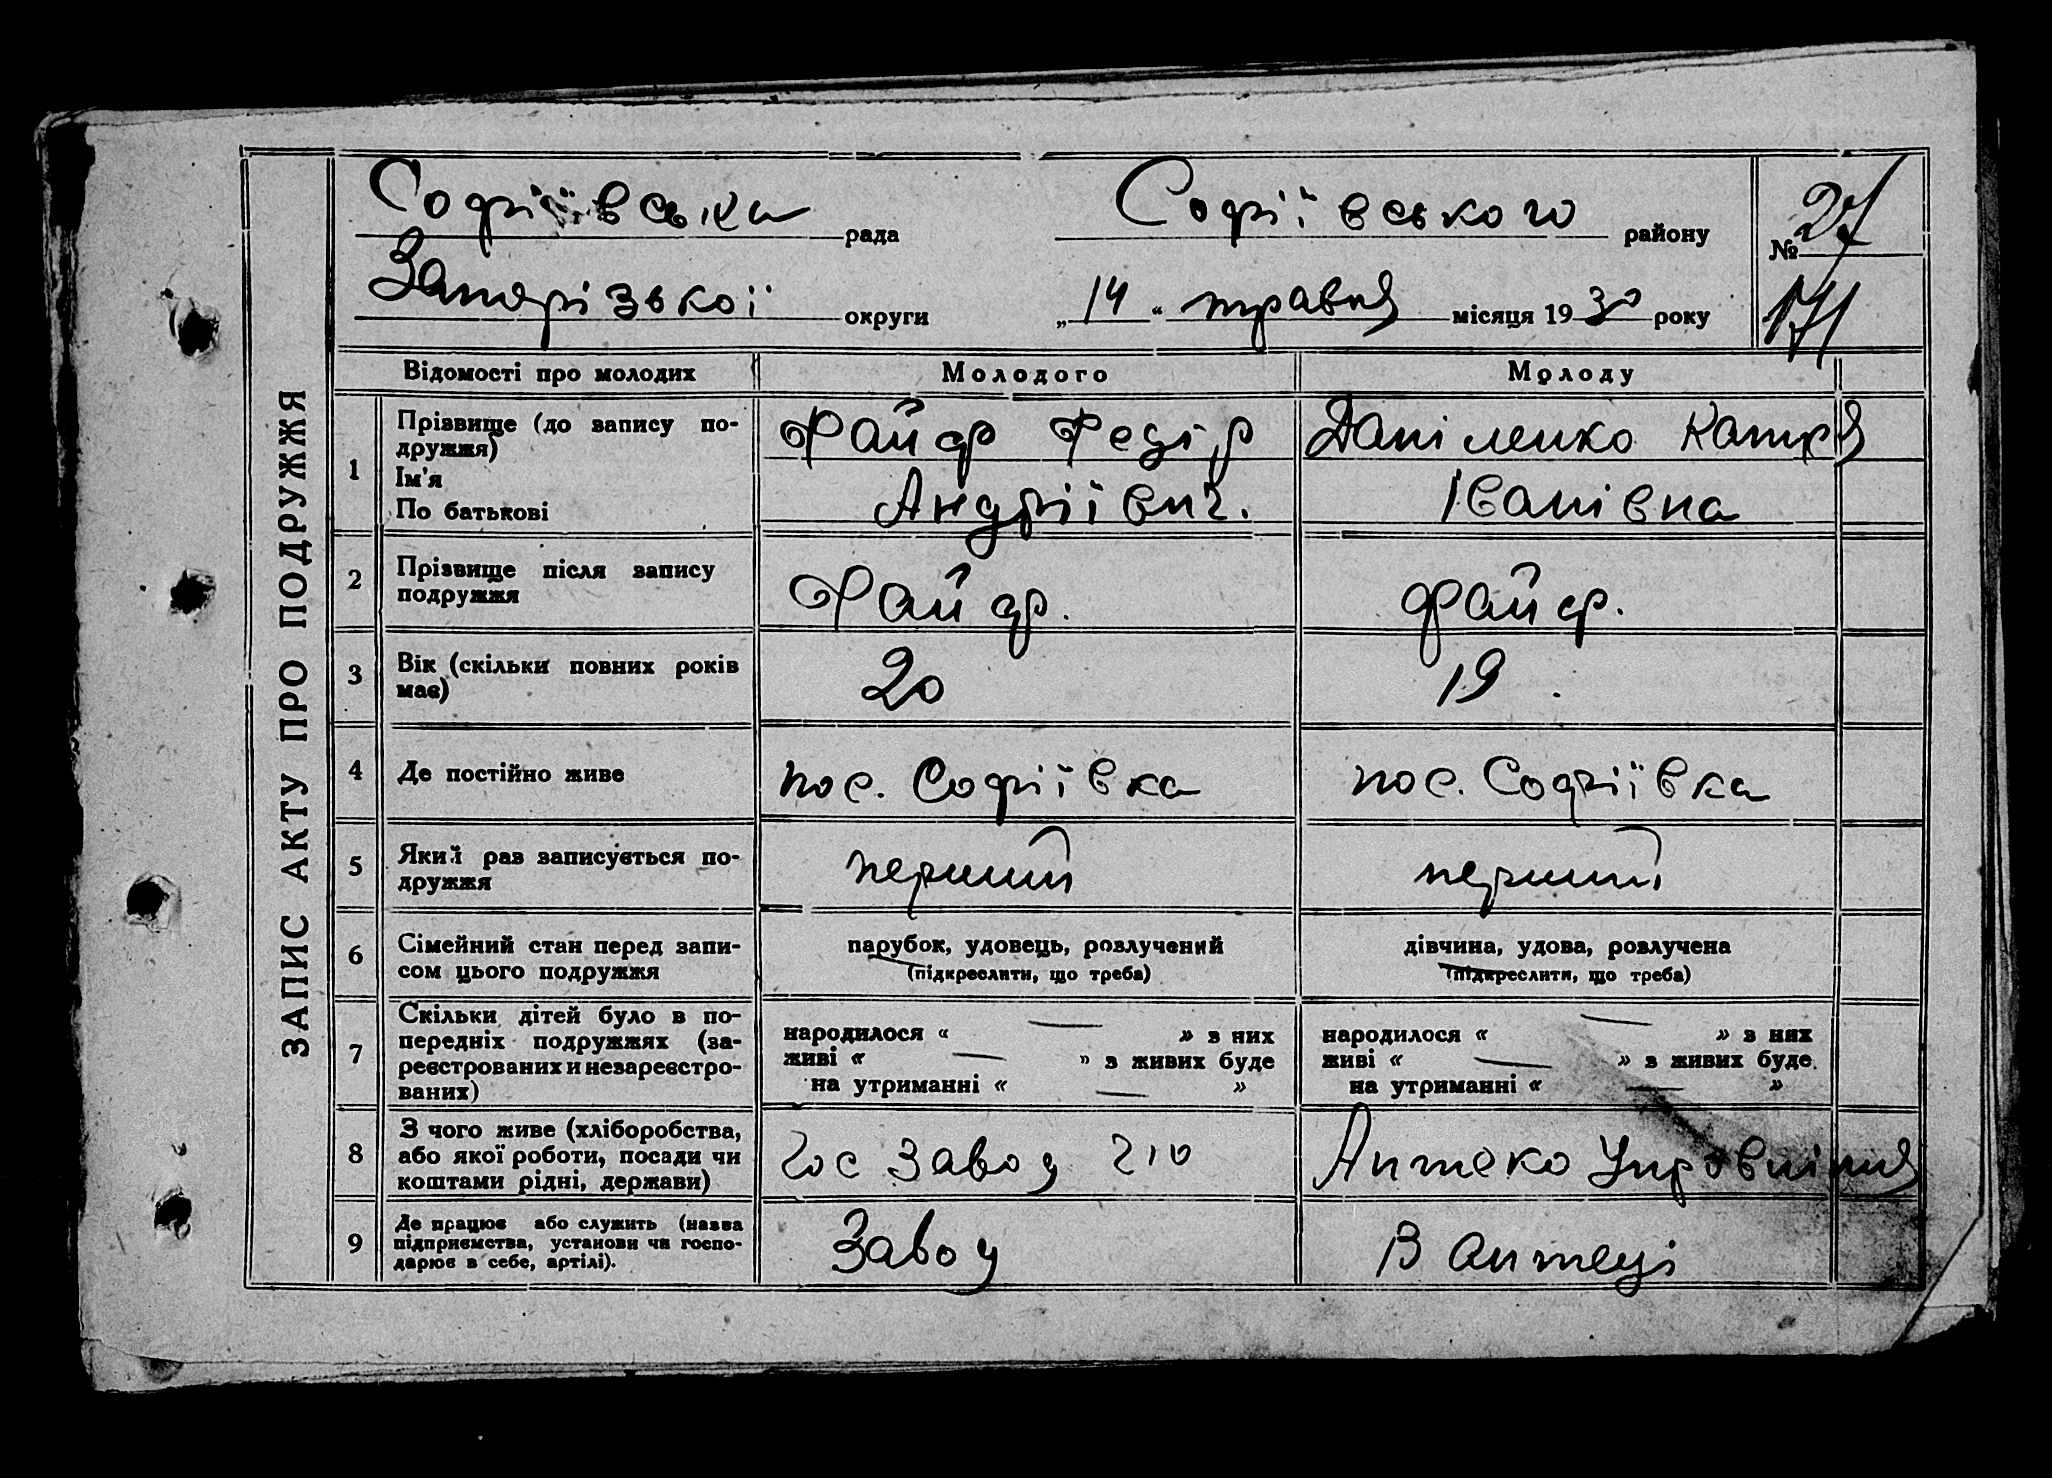 ЗАПИС АКТУ ПРО ПОДРУЖЖЯ
Софіївська рада Софіївського району № 27
Запорізької округи „ 14 “ травня місяця 19 30 року 171
Відомості про молодих Молодого Молоду
1 Прізвище (до запису по-
дружжя) Файфр Федір Даніленко Катря
Ім'я
По батькові Андріївич. Іванівна
2 Прізвище після запису
подружжя Файфр. Файфр.
3 Вік (скільки повних років
має) 20 19.
4 Де постійно живе пос. Софіївка пос. Софіївка
5 Який раз записується по-
дружжя перший перший
6 Сімейний стан перед запи-
сом цього подружжя
парубок, удовець, розлучений дівчина, удова, розлучена
(підкреслити, що треба) (підкреслити, що треба)
7 Скільки дітей було в по-
передніх подружжях (за-
реєстрованих и незареєстро-
ваних)
народилося « — » з них народилося « — » з них
живі « — » з живих буде живі « — » з живих буде
на утриманні « — » на утриманні « — »
8 З чого живе (хліборобства,
або якої роботи, посади чи
коштами рідні, держави)
Гос Завод Аптеко
9 Де працює або служить (назва
підприємства, установи чи госпо-
дарює в себе, артілі).
Завод В аптеці